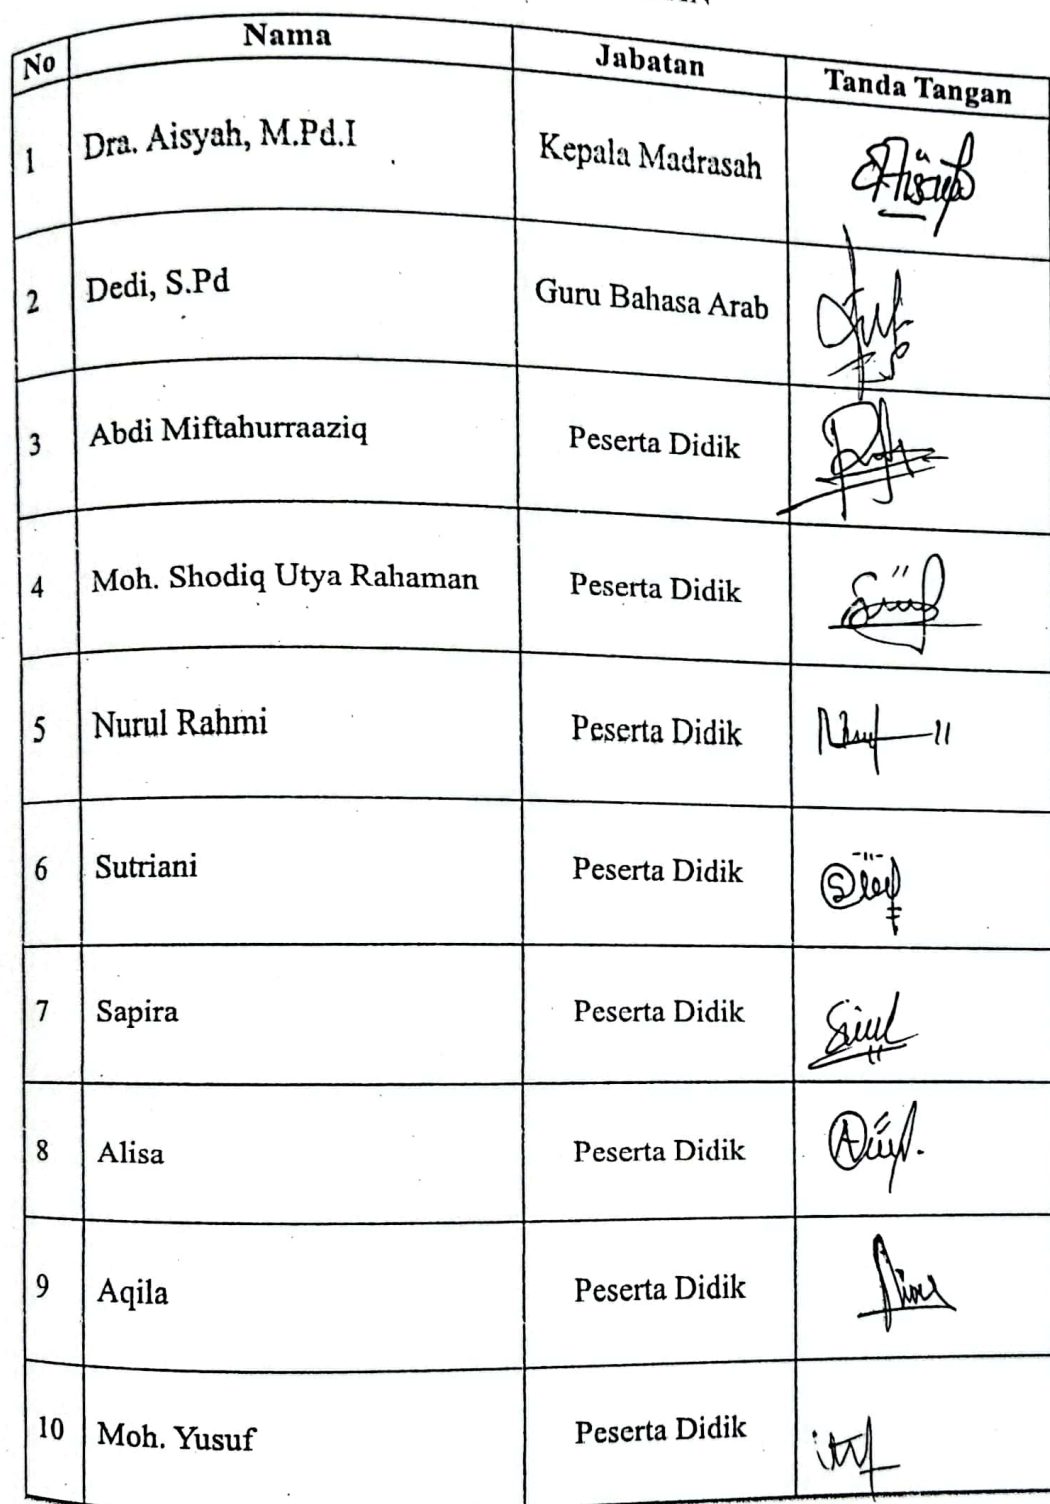 No Nama Jabatan Tanda Tangan
1 Dra. Aisyah, M.Pd.I Kepala Madrasah
2 Dedi, S.Pd Guru Bahasa Arab
3 Abdi Miftahurraaziq Peserta Didik
4 Moh. Shodiq Utya Rahaman Peserta Didik
5 Nurul Rahmi Peserta Didik
6 Sutriani Peserta Didik
7 Sapira Peserta Didik
8 Alisa Peserta Didik
9 Aqila Peserta Didik
10 Moh. Yusuf Peserta Didik